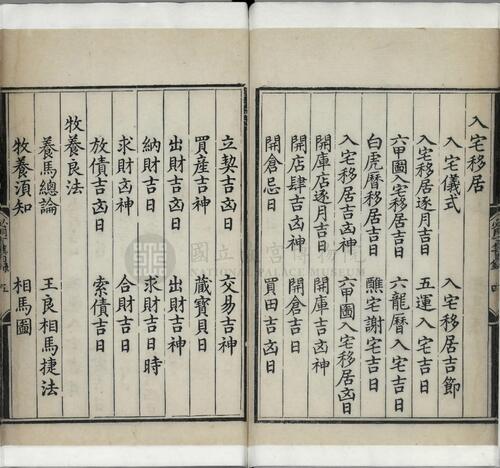 入宅移居
入宅儀式　入宅移居吉節
入宅移居逐月吉日　五運入宅吉日
六甲圖入宅移居吉日　六龍曆入宅吉日
白虎曆移居吉日　醮宅謝宅吉日
入宅移居吉㐫神　六甲圖入宅移居㐫日
開庫店逐月吉日　開庫吉㐫神
開店肆吉㐫日　開倉吉日
開倉忌日　買田吉㐫日
立契吉㐫日　交易吉神
買産吉神　藏寶貝日
出財吉㐫神　出財吉神
納財吉日　求財吉日時
求財㐫神　合財吉日
放債吉㐫日　索債吉日
牧養良法
養馬總論　王良相馬捷法
牧養須知　相馬圖
國立故宮博物院
NATIONAL PALACE MUSEUM